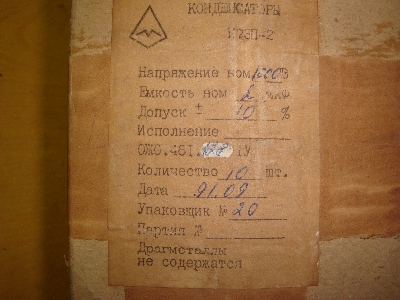 КОНДЕНСАТОРЫ
Напряжение ном В
Емкость ном мкФ
Допуск ± 10 %
Исполнение
ОЖО.461. ТУ
Количество 10 шт.
Дата 91.09
Упаковщик № 20
Партия №
Драгметаллы
не содержатся